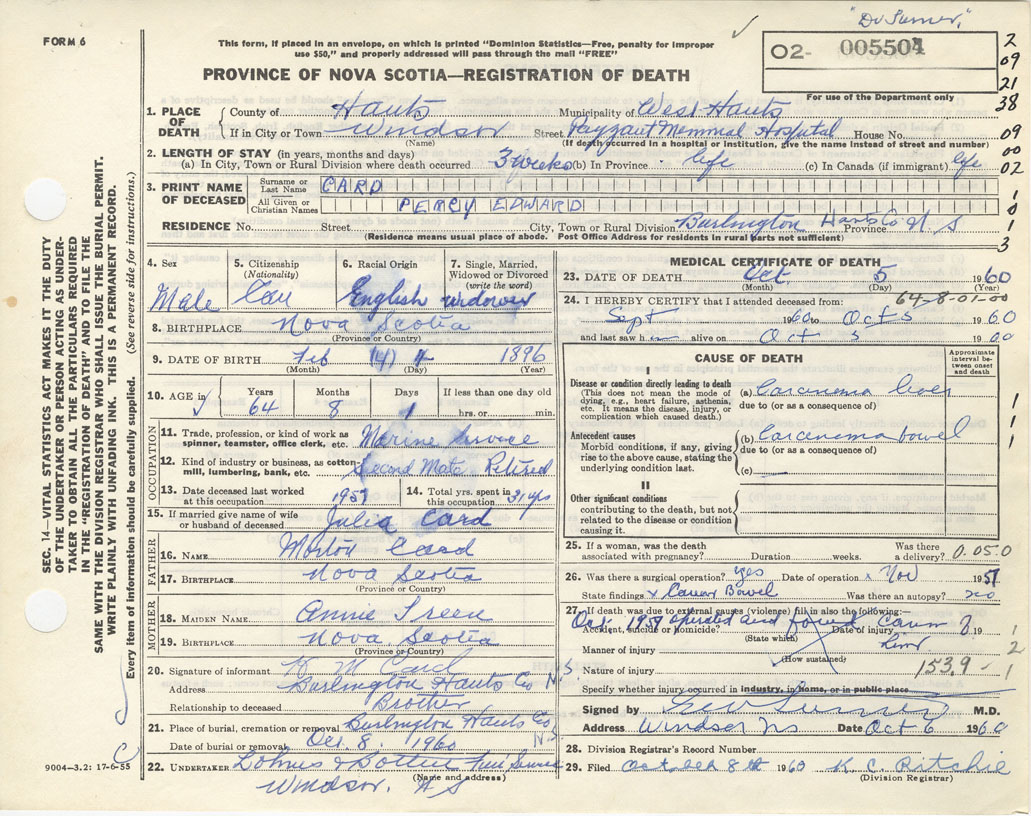 "Dr Sumner"
FORM 6
This form, if placed in an envelope, on which is printed "Dominion Statistics—Free, penalty for improper
use $50," and properly addressed will pass through the mail "FREE"
PROVINCE OF NOVA SCOTIA—REGISTRATION OF DEATH
O2- 005504
For use of the Department only
2
09
21
38
09
00
02
1
0
1
3
SEC. 14—VITAL STATISTICS ACT MAKES IT THE DUTY
OF THE UNDERTAKER OR PERSON ACTING AS UNDER-
TAKER TO OBTAIN ALL THE PARTICULARS REQUIRED
IN THE "REGISTRATION OF DEATH" AND TO FILE THE
SAME WITH THE DIVISION REGISTRAR WHO SHALL ISSUE THE BURIAL PERMIT.
WRITE PLAINLY WITH UNFADING INK. THIS IS A PERMANENT RECORD.
Every item of information should be carefully supplied. (See reverse side for instructions.)
1. PLACE OF DEATH County of Hants Municipality of West Hants
If in City or Town Windsor Street Payzant Memorial Hospital House No.
(Name) (If death occurred in a hospital or institution, give the name instead of street and number)
2. LENGTH OF STAY (in years, months and days)
(a) In City, Town or Rural Division where death occurred 3 weeks (b) In Province life (c) In Canada (if immigrant) life
3. PRINT NAME OF DECEASED Surname or Last Name CARD
All Given or Christian Names PERCY EDWARD
RESIDENCE No. Street City, Town or Rural Division Burlington Hants Co Province N. S
(Residence means usual place of abode. Post Office Address for residents in rural parts not sufficient)
4. Sex 5. Citizenship (Nationality) 6. Racial Origin 7. Single, Married, Widowed or Divorced (write the word)
Male Can English widower
8. BIRTHPLACE Nova Scotia
(Province or Country)
9. DATE OF BIRTH Feb (4) 4 1896
(Month) (Day) (Year)
10. AGE in Years Months Days If less than one day
64 8 1 hrs. or min.
OCCUPATION
11. Trade, profession, or kind of work as spinner, teamster, office clerk, etc. Marine Service
12. Kind of industry or business, as cotton-mill, lumbering, bank, etc. Second Mate Retired
13. Date deceased last worked at this occupation 1957 14. Total yrs. spent in this occupation 31 yrs
15. If married give name of wife or husband of deceased Julia Card
FATHER
16. NAME Card
17. BIRTHPLACE Nova Scotia
(Province or Country)
MOTHER
18. MAIDEN NAME Annie
19. BIRTHPLACE Nova Scotia
(Province or Country)
20. Signature of informant K M Card
Address Burlington Hants Co N.S.
Relationship to deceased Brother
21. Place of burial, cremation or removal Burlington Hants Co N.S
Date of burial or removal Oct. 8. 1960
22. UNDERTAKER
(Name and address)
Windsor. N S
9004—3.2: 17-6-55
MEDICAL CERTIFICATE OF DEATH
23. DATE OF DEATH Oct 5 1960
(Month) (Day)
64-8-01-00
24. I HEREBY CERTIFY that I attended deceased from:
Sept 1960 to Oct 5 1960
and last saw h alive on Oct 5 1960
CAUSE OF DEATH
Approximate interval between onset and death
I
Disease or condition directly leading to death
(This does not mean the mode of dying, e.g., heart failure, asthenia, etc. It means the disease, injury, or complication which caused death.)
(a) Carcinema liver
due to (or as a consequence of)
Antecedent causes
Morbid conditions, if any, giving rise to the above cause, stating the underlying condition last.
(b) Carcinema bowel
due to (or as a consequence of)
(c)
II
Other significant conditions
contributing to the death, but not related to the disease or condition causing it.
1
1
1
1
25. If a woman, was the death associated with pregnancy? Duration weeks. Was there a delivery? 0.05.0
26. Was there a surgical operation? yes Date of operation x Nov 1957
State findings x Cancer Bowel Was there an autopsy? no
27. If death was due to external causes (violence) fill in also the following:—
Oct 1957 operated and found Cancer
Accident, suicide or homicide? Date of injury 19
(State which)
Manner of injury
(How sustained)
Nature of injury 1539
1
2
1
Specify whether injury occurred in industry, in home, or in public place
Signed by M.D.
Address Windsor NS Date Oct 6 1960
28. Division Registrar's Record Number
29. Filed October 8th 1960 K. C. Ritchie
(Division Registrar)